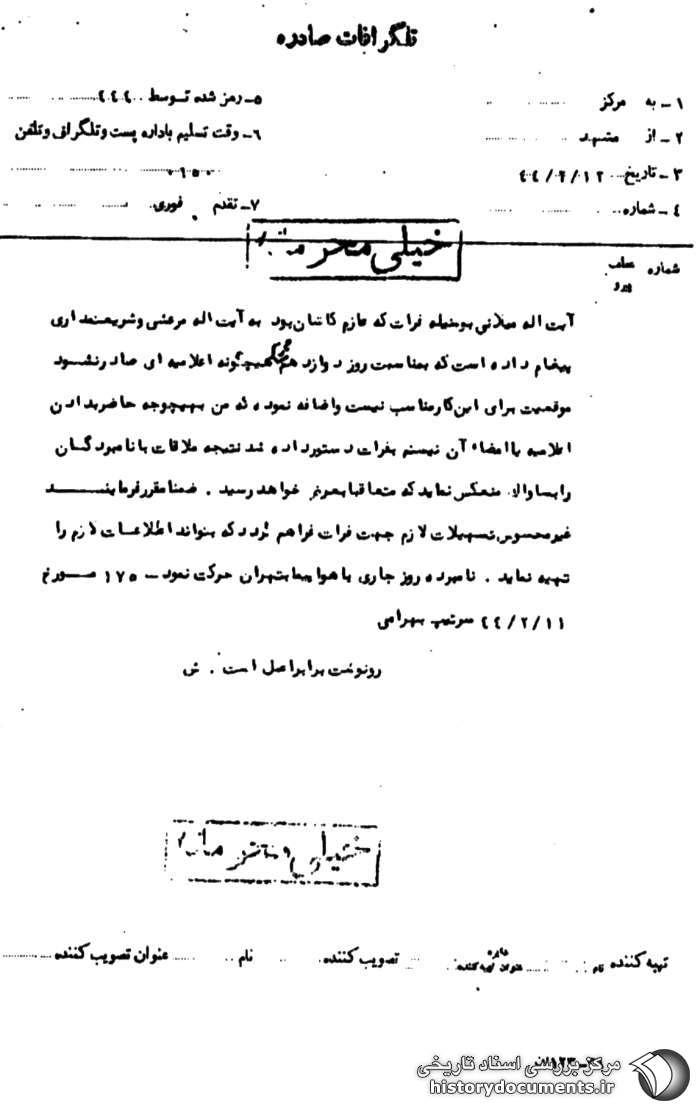 تلگرافات صادره
۱ـ به مرکز
۲ـ از مشهد
۳ـ تاریخ ۴۴/۲/۱۲
۴ـ شماره
۵ـ رمز شده توسط ۴۴۰
۶ـ وقت تسلیم باداره پست وتلگراف وتلفن
۰۶۵۰
۷ـ تقدم فوری
خیلی محرمانه
شماره عطف پیرو
آیت اله میلانی بوسیله فرات که عازم کاشان بود به آیت اله مرعشی وشریعتمداری
پیغام داده است که بمناسبت روز دوازدهم محرم هیچگونه اعلامیه ای صادرنشود
موقعیت برای این کارمناسب نیست واضافه نموده که من بهیچوجه حاضربدادن
اعلامیه یاامضاء آن نیستم بفرات دستورداده شد نتیجه ملاقات بانامبردگان
را بساواک منعکس نماید که متعاقبا بعرض خواهد رسید . ضمنا مقررفرمایند
غیرمحسوس تسهیلات لازم جهت فرات فراهم گردد که بتواند اطلاعات لازم را
تهیه نماید . نامبرده روز جاری با هواپیما بتهران حرکت نمود ـ ۱۷۵ مورخ
۴۴/۲/۱۱ سرتیپ بهرامی
رونوشت برابراصل است . ش
خیلی محرمانه
تهیه کننده نام عنوان تهیه کننده تصویب کننده نام عنوان تصویب کننده
مرکز بررسی اسناد تاریخی
historydocuments.ir